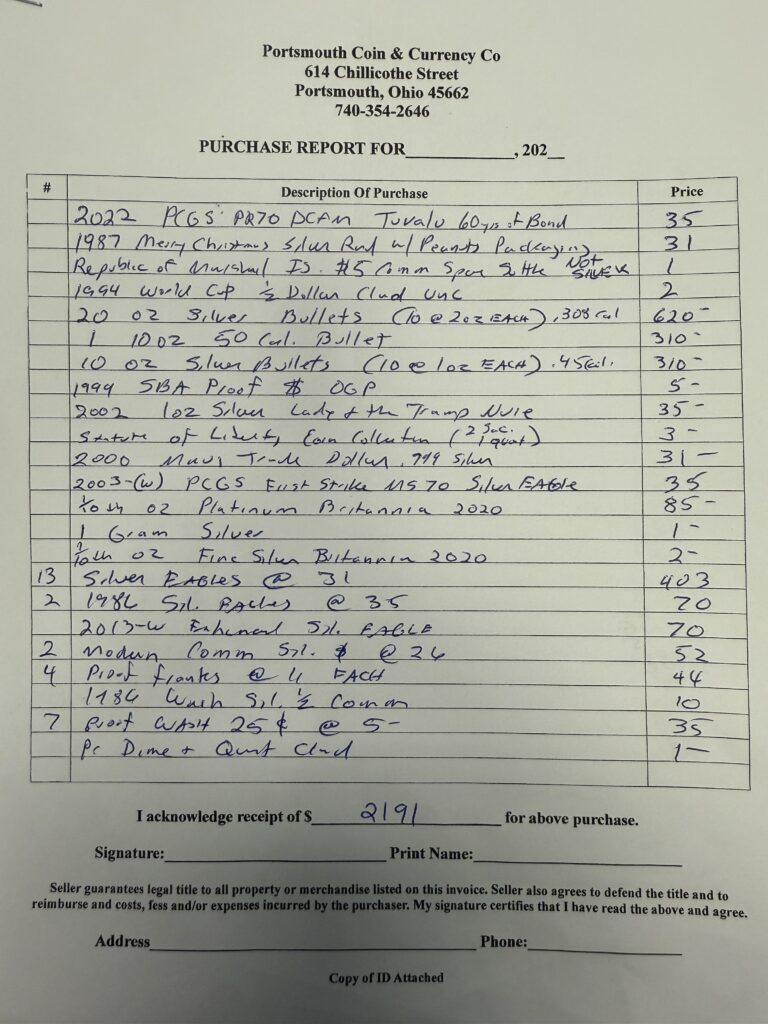 Portsmouth Coin & Currency Co
614 Chillicothe Street
Portsmouth, Ohio 45662
740-354-2646
PURCHASE REPORT FOR____________, 202__
# Description Of Purchase Price
2022 PCGS PR70 DCAM Tuvalu 60 yrs of Bond 35
1987 Merry Christmas Silver Rnd w/ Peanuts Packaging 31
Republic of Marshall Is. $5 Comm Space Shttle NOT SILVER 1
1994 World Cup ½ Dollar Clad Unc 2
20 oz Silver Bullets (10 @ 2oz EACH) .308 Cal 620-
1 10 oz 50 Cal. Bullet 310-
10 oz Silver Bullets (10 @ 1oz EACH) .45 Cal. 310-
1999 SBA Proof $ OGP 5-
2002 1oz Silver Lady & the Tramp Niue 35-
Statute of Liberty Coin Collection (2 Sac. 1 quart) 3-
2000 Maui Trade Dollar .999 Silver 31-
2003-(W) PCGS First Strike MS70 Silver EAGLE 35
1/10th oz Platinum Britannia 2020 85-
1 Gram Silver 1-
1/10th oz Fine Silver Britannia 2020 2-
13 Silver EAGLES @ 31 403
2 1986 Sil. EAGLES @ 35 70
2013-W Enhanced Sil. EAGLE 70
2 Modern Comm Sil. $ @ 26 52
4 Proof @ 11 EACH 44
Wash Sil. ½ Comm 10
7 Proof WASH 25¢ @ 5- 35
Pr Dime + Quart Clad 1-
I acknowledge receipt of $ 2191 for above purchase.
Signature:____________ Print Name:____________
Seller guarantees legal title to all property or merchandise listed on this invoice. Seller also agrees to defend the title and to
reimburse and costs, fess and/or expenses incurred by the purchaser. My signature certifies that I have read the above and agree.
Address____________ Phone:____________
Copy of ID Attached